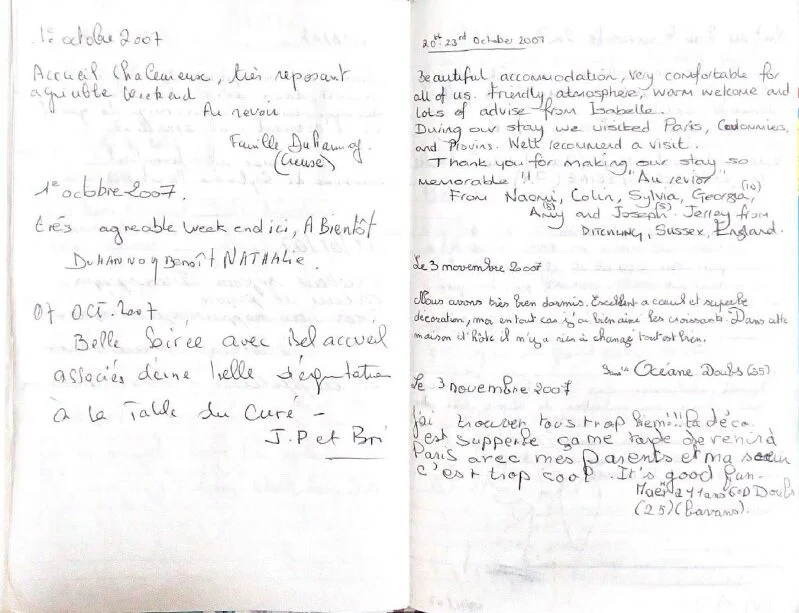 1e octobre 2007
Accueil chaleureux, très reposant
agréable weekend
Au revoir
Famille Duhannoy
(Creuse)
1e octobre 2007.
très agréable week end ici, A Bientôt
DUHANNOY BENOÎT NATHALIE.
07 OCT. 2007
Belle Soirée avec Bel accueil
associés d'une belle dégustation
à la Table du Curé -
J.P et Bri
20th-23rd October 2007
Beautiful accommodation, very comfortable for
all of us. Friendly atmosphere, warm welcome and
lots of advise from Isabelle.
During our stay we visited Paris, Coulommiers,
and Provins. Well recommend a visit.
Thank you for making our stay so
memorable !! "Au revior"
From Naomi, Colin, Sylvia, Georgia, (10)
Amy (8) and Joseph (5). Jerrey from
DITCHLING, SUSSEX, England.
Le 3 novembre 2007
Nous avons très bien dormis. Excellent acceuil et superbe
décoration, moi en tout cas j'ai bien aimé les croissants. Dans cette
maison d'hôte il n'y a rien à changé tout est bien.
Océane Doubs (25)
Le 3 novembre 2007
j'ai trouver tous trop bien!!! la déco
est supperbe ça me tarde de revenir à
Paris avec mes Parents et ma sœur
c'est trop cool. It's good fun.
11ans Doubs
(25) (Lavans).